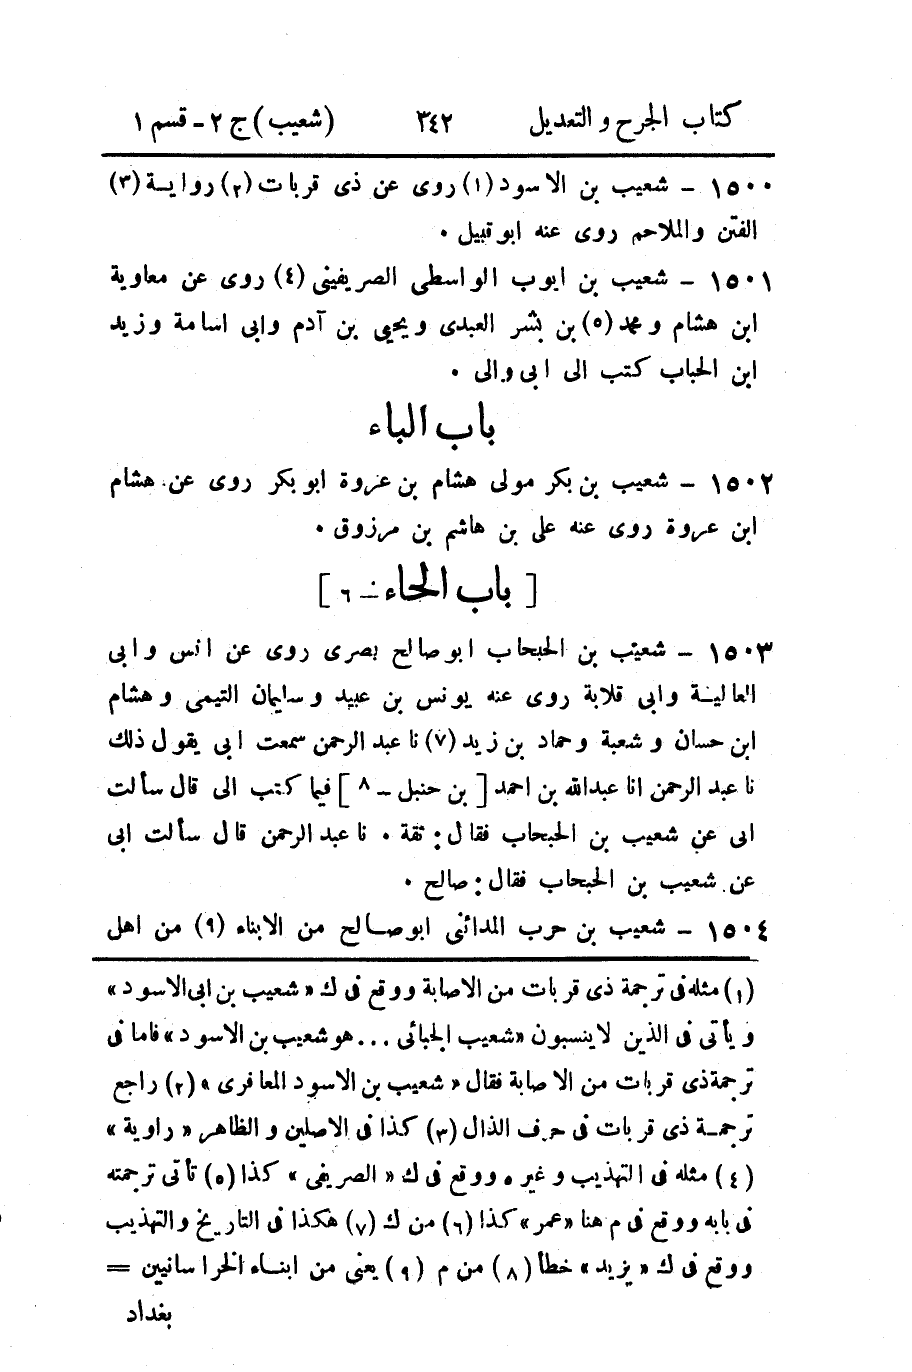 كتاب الجرح والتعديل ٣٤٢ (شعيب) ج ٢ - قسم ١
١٥٠٠ - شعيب بن الاسود (١) روى عن ذى قربات (٢) رواية (٣)
الفتن والملاحم روى عنه ابو قبيل ٠
١٥٠١ - شعيب بن ايوب الواسطى الصريفينى (٤) روى عن معاوية
ابن هشام و محمد (٥) بن بشر العبدى و يحيى بن آدم وابى اسامة وزيد
ابن الحباب كتب الى ابى والى ٠
باب الباء
١٥٠٢ - شعيب بن بكر مولى هشام بن عروة ابو بكر روى عن هشام
ابن عروة روى عنه على بن هاشم بن مرزوق ٠
[ باب الحاء - ٦ ]
١٥٠٣ - شعيب بن الحبحاب ابو صالح بصرى روى عن انس وابى
العالية وابى قلابة روى عنه يونس بن عبيد وسليمان التيمى وهشام
ابن حسان وشعبة وحماد بن زيد (٧) نا عبد الرحمن سمعت ابى يقول ذلك
نا عبد الرحمن انا عبدالله بن احمد [ بن حنبل - ٨ ] فيما كتب الى قال سألت
ابى عن شعيب بن الحبحاب فقال : ثقة ٠ نا عبد الرحمن قال سألت ابى
عن شعيب بن الحبحاب فقال : صالح ٠
١٥٠٤ - شعيب بن حرب المدائنى ابو صالح من الابناء (٩) من اهل
(١) مثله فى ترجمة ذى قربات من الاصابة ووقع فى ك « شعيب بن ابى الاسود »
و يأتى فى الذين لا ينسبون « شعيب الجبائى ... هو شعيب بن الاسود » فاما فى
ترجمة ذى قربات من الاصابة فقال « شعيب بن الاسود المعافرى » (٢) راجع
ترجمة ذى قربات فى حرف الذال (٣) كذا فى الاصلين و الظاهر « راوية »
(٤) مثله فى التهذيب و غيره ووقع فى ك « الصريفى » كذا (٥) تأتى ترجمته
فى بابه ووقع فى م هنا « عمر » كذا (٦) من ك (٧) هكذا فى التاريخ والتهذيب
ووقع فى ك « يزيد » خطأ (٨) من م (٩) يعنى من ابناء الخراسانيين =
بغداد